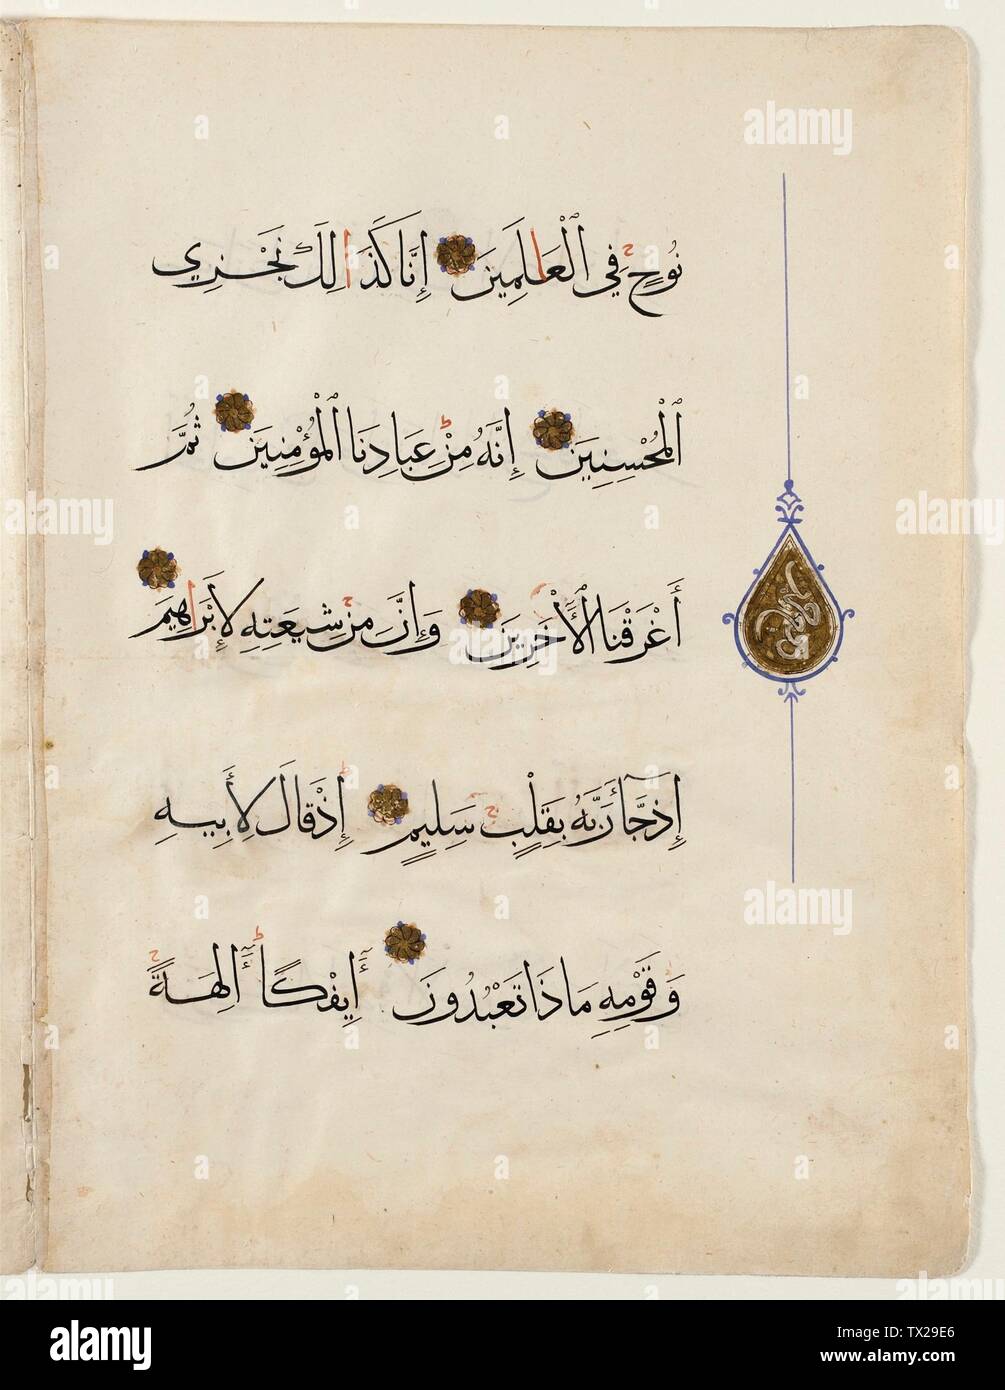 نُوحٍ فِي الْعَالَمِينَ إِنَّا كَذَالِكَ نَجْزِي
الْمُحْسِنِينَ إِنَّهُ مِنْ عِبَادِنَا الْمُؤْمِنِينَ ثُمَّ
أَغْرَقْنَا الْأَخَرِينَ وَإِنَّ مِنْ شِيعَتِهِ لَإِبْرَاهِيمَ
إِذْ جَآءَ رَبَّهُ بِقَلْبٍ سَلِيمٍ إِذْ قَالَ لِأَبِيهِ
وَقَوْمِهِ مَاذَا تَعْبُدُونَ أَئِفْكًا أَلِهَةً
alamy
alamy
alamy
alamy
alamy
alamy
a
a
a
a
a
a
a
a
alamy
Image ID: TX29E6
www.alamy.com